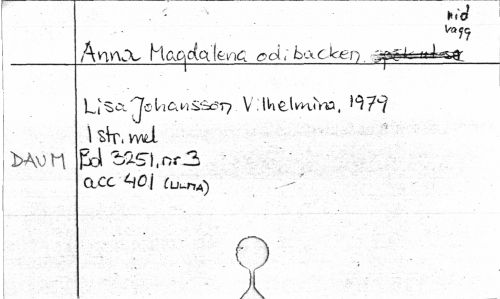 nid
vagg
Anna Magdalena odi backen
Lisa Johansson Vilhelmina, 1979
1 str. mel
DAUM Bd 3251, nr 3
acc 401 (ULMA)